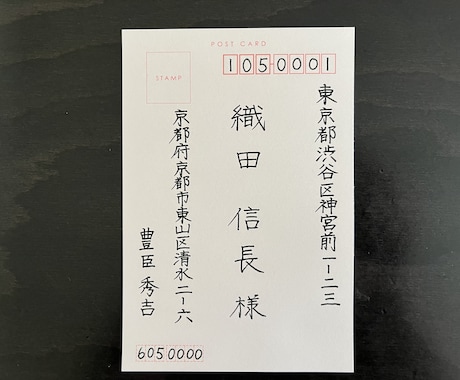 POST CARD
STAMP
1050001
東京都渋谷区神宮前一ー二三
織田 信長 様
京都府京都市東山区清水二ー六
豊臣 秀吉
6050000